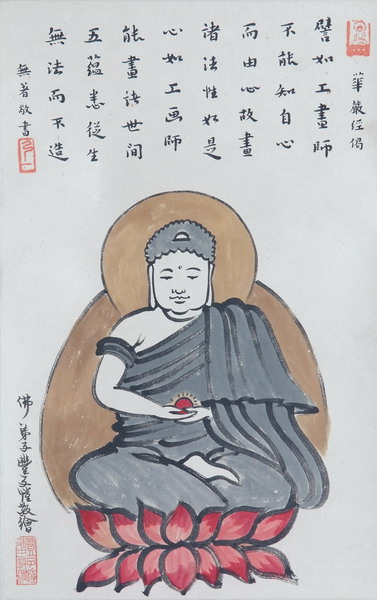 華嚴經偈
譬如工畫師
不能知自心
而由心故畫
諸法性如是
心如工画師
能畫諸世間
五蘊悉從生
無法而不造
無著敬書
佛弟子豐子愷敬繪